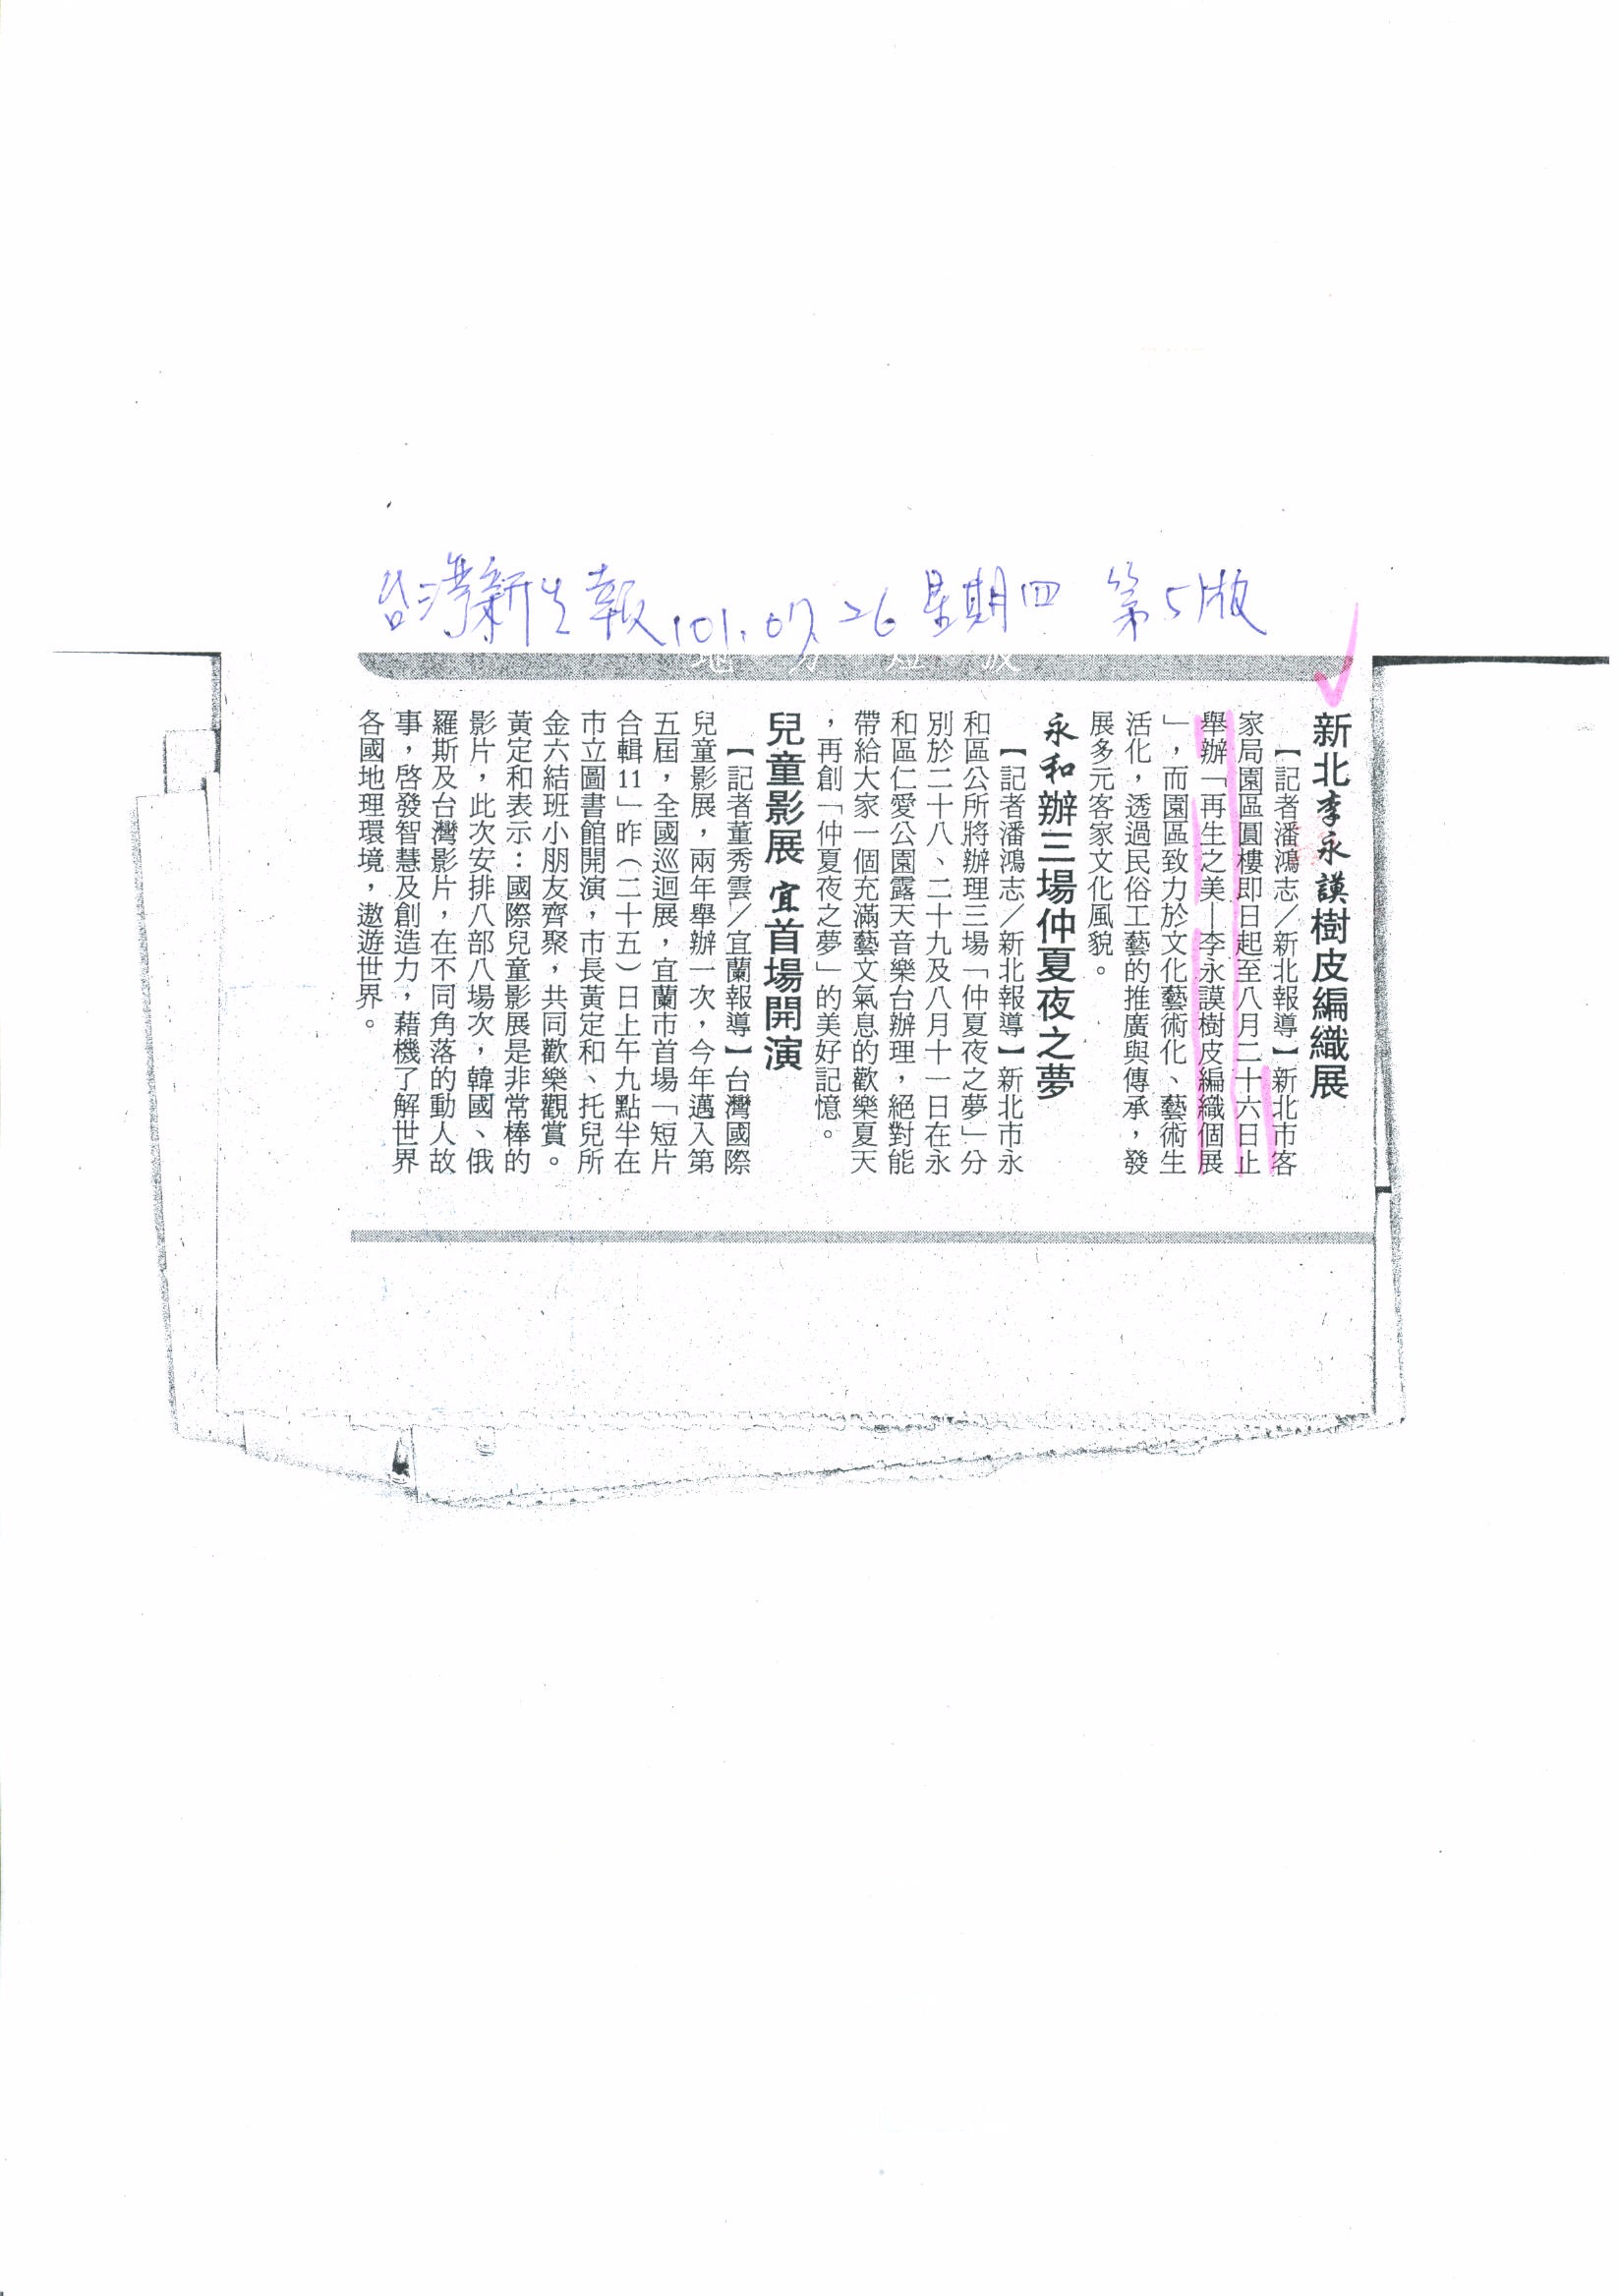 台灣新生報 101.07.26 星期四 第5版
地方短波
新北李永謨樹皮編織展
【記者潘鴻志/新北報導】新北市客
家局園區圓樓即日起至八月二十六日止
舉辦「再生之美—李永謨樹皮編織個展
」，而園區致力於文化藝術化、藝術生
活化，透過民俗工藝的推廣與傳承，發
展多元客家文化風貌。
永和辦三場仲夏夜之夢
【記者潘鴻志/新北報導】新北市永
和區公所將辦理三場「仲夏夜之夢」分
別於二十八、二十九及八月十一日在永
和區仁愛公園露天音樂台辦理，絕對能
帶給大家一個充滿藝文氣息的歡樂夏天
，再創「仲夏夜之夢」的美好記憶。
兒童影展 宜首場開演
【記者董秀雲/宜蘭報導】台灣國際
兒童影展，兩年舉辦一次，今年邁入第
五屆，全國巡迴展，宜蘭市首場「短片
合輯11」昨（二十五）日上午九點半在
市立圖書館開演，市長黃定和、托兒所
金六結班小朋友齊聚，共同歡樂觀賞。
黃定和表示：國際兒童影展是非常棒的
影片，此次安排八部八場次，韓國、俄
羅斯及台灣影片，在不同角落的動人故
事，啓發智慧及創造力，藉機了解世界
各國地理環境，遨遊世界。